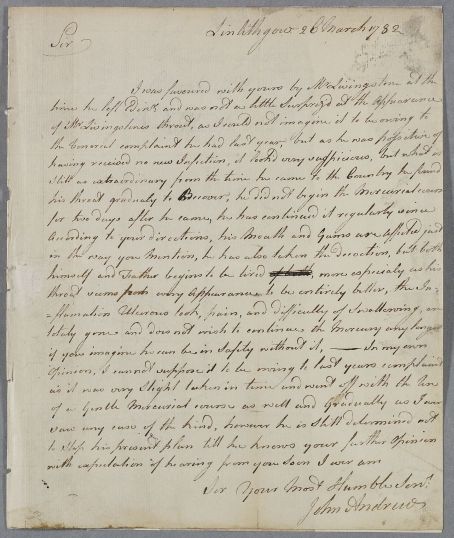 Linlithgow 26 March 1782
Sir
I was favoured with yours by Mr Livingstone at the
time he left Edinr. and was not a little Surprized at the Appearance
of Mr Livingstones throat, as I could not imagine it to be owing to
the Venereal complaint he had last year, but as he was possitive of
having received no new Infection, it look'd very suspicious, but what is
still as extraordinary from the time he came to the Country he found
his throat gradualy to Recover, he did not begin the Mercurial course
for two days after he came, he has continued it regularly since
According to your directions, his Mouth and Gums are affected just
in the way you mention, he has also taken the decoction, but both
himself and Father begins to be tired more especialy as his
throat seems from every Appearance to be entirely better, the In-
=flamation Ulcerous look, pain, and difficulty of Swallowing, are
totaly gone and does not wish to continue the Mercury any longer
if you imagine he can be in Safety without it, — In my own
Opinion, I cannot suppose it to be owing to last years complaint
as it was very Slight taken in time and went off with the Use
of a Gentle Mercurial course as well and gradually as I ever
saw any case of the kind, however he is still determined not
to Stop his present plan till he knows your further Opinion
with expectation of hearing from you soon I ever am
Sir Your Most Humble Servt.
John Andrew